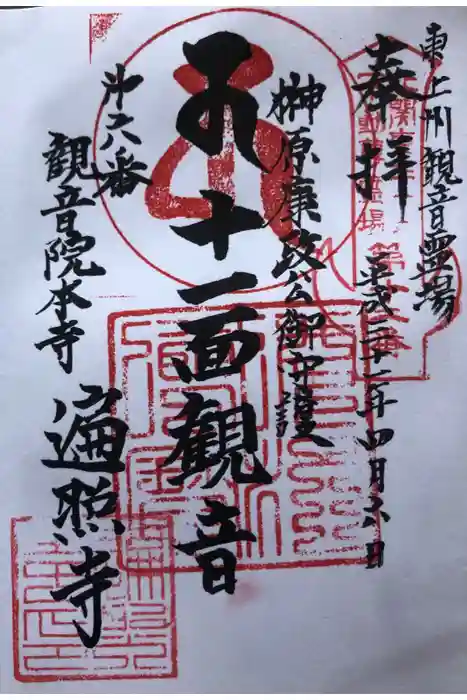 東上州観音霊場
奉拝
平成二十二年四月六日
榊原康政公御守護
十一面観音
第六番
観音院本寺
遍照寺